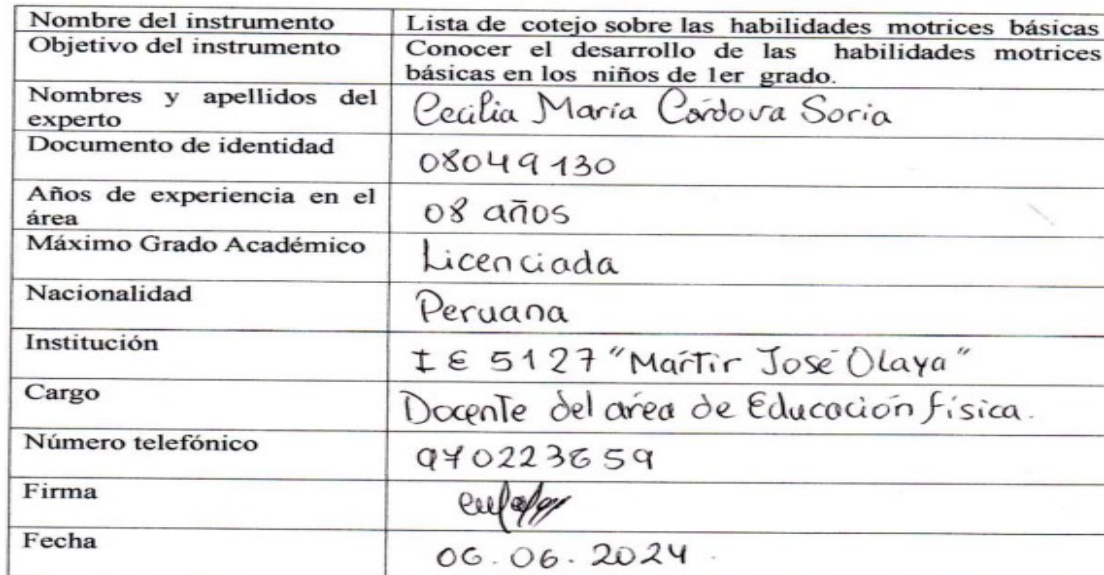 Nombre del instrumento Lista de cotejo sobre las habilidades motrices básicas
Objetivo del instrumento Conocer el desarrollo de las habilidades motrices
básicas en los niños de 1er grado.
Nombres y apellidos del
experto Cecilia María Córdova Soria
Documento de identidad 08049130
Años de experiencia en el
área 08 años
Máximo Grado Académico Licenciada
Nacionalidad Peruana
Institución I E 5127 "Mártir José Olaya"
Cargo Docente del área de Educación física.
Número telefónico
Firma
Fecha 06.06.2024.